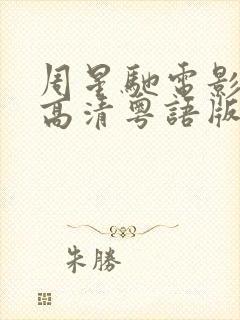 周星馳電影
高清粵語版
朱勝